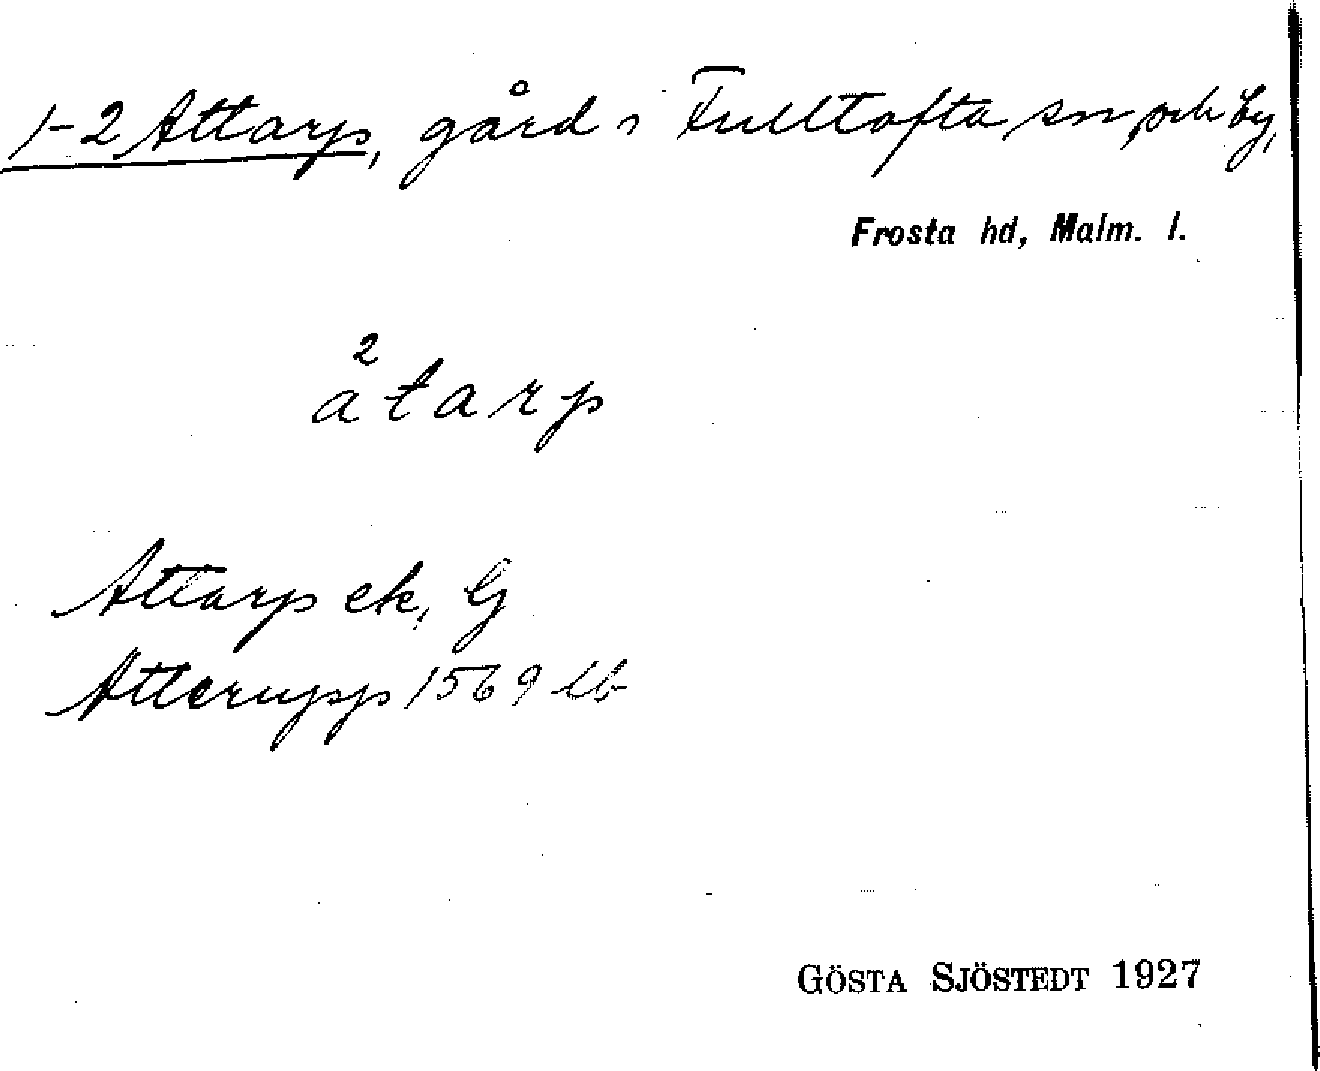 1-2 Attarp, gård i Fulltofta sn och by,
Frosta hd, Malm. l.
2
åtarp
Attarp ek, G
Atterupp 1569 lb
GÖSTA SJÖSTEDT 1927